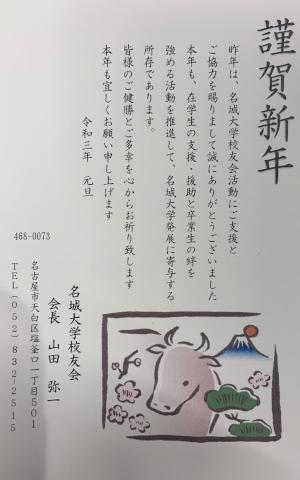 謹賀新年
昨年は、名城大学校友会活動にご支援と
ご協力を賜りまして誠にありがとうございました
本年も、在学生の支援・援助と卒業生の絆を
強める活動を推進して、名城大学発展に寄与する
所存であります。
皆様のご健勝とご多幸を心からお祈り致します
本年も宜しくお願い申し上げます
令和三年 元旦
名城大学校友会
会長 山田 弥一
468-0073
名古屋市天白区塩釜口一丁目501
TEL(052)832-2515